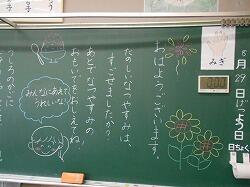 おはようございます。
たのしいなつやすみは、
すごせましたか？
あとでなつやすみの
おもいでをおしえてね。
みんなにあえて
うれしいな！
みぎ
8月29日
よう日
日ちょく